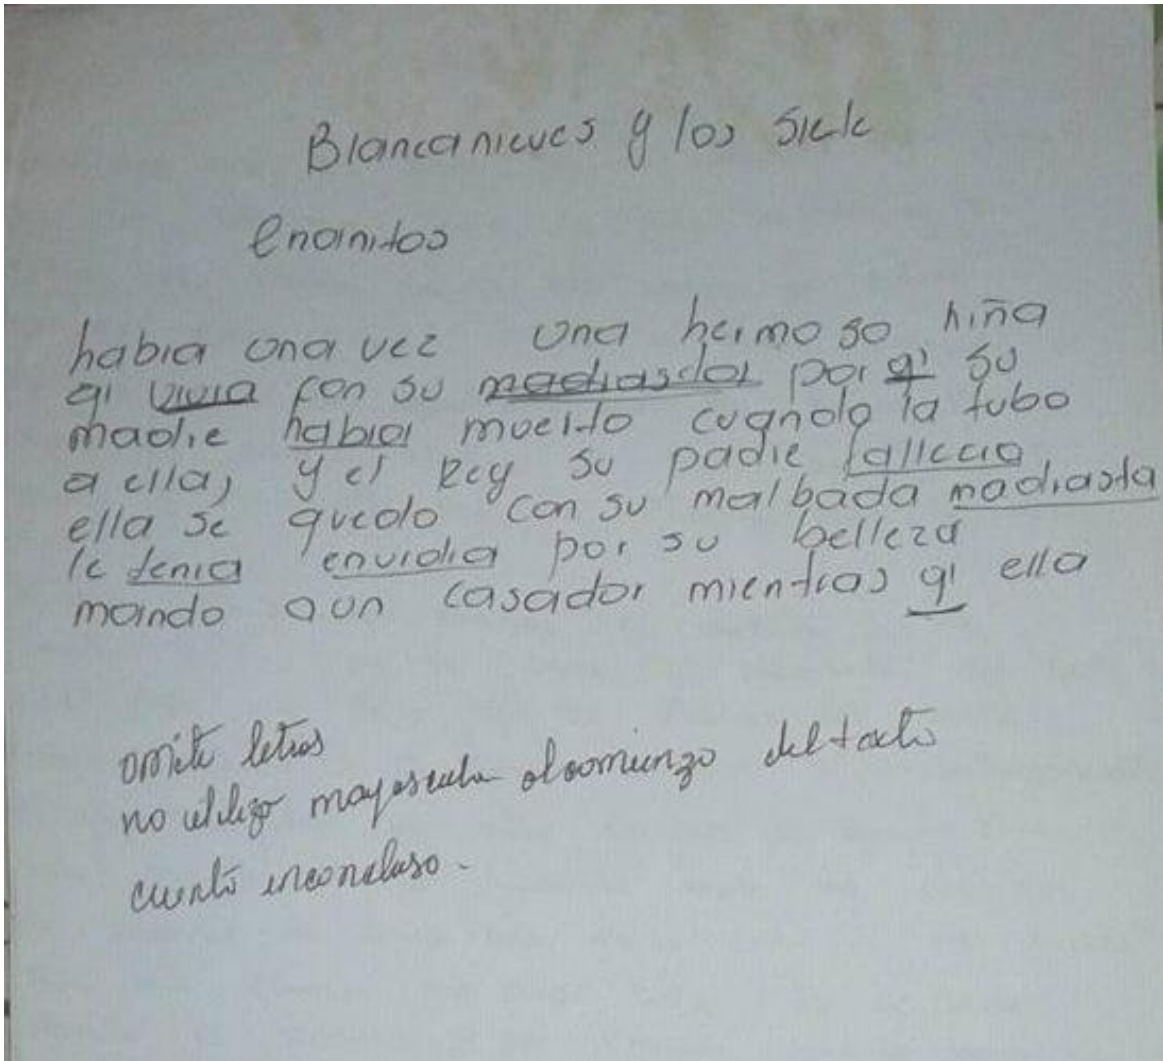 Blancanieves y los siete
enanitos
habia una vez una hermoso niña
qi vivia con su madrasdra por qi su
madre habia muerto cuando la tubo
a ella, y el Rey su padre fallecio
ella se quedo con su malbada madrasta
le tenia envidia por su belleza
mando aun casador mientras qi ella
omite letras
no utilizo mayuscula al comienzo del texto
cuento inconcluso.